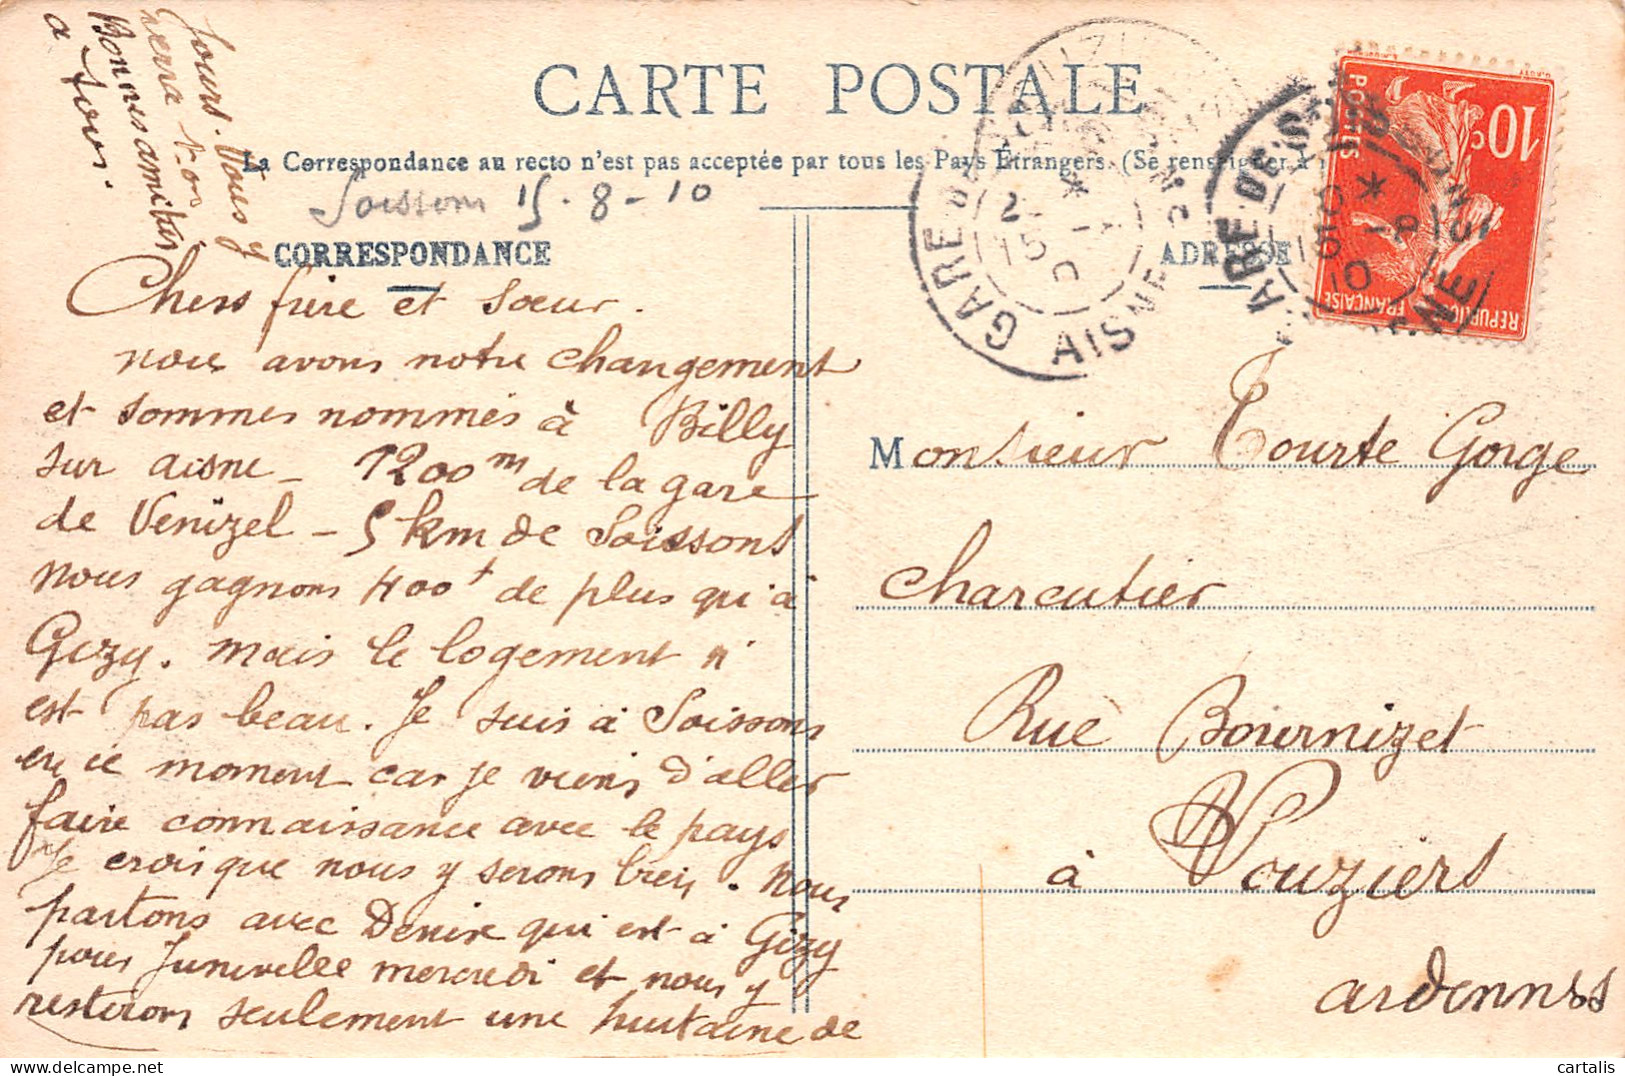 CARTE POSTALE
La Correspondance au recto n'est pas acceptée par tous les Pays Étrangers. (Se renseigner à
Soissons 15-8-10
CORRESPONDANCE
ADRESSE
Chers frère et soeur.
nous avons notre changement
et sommes nommés à Billy
sur aisne - 1200m de la gare
de Venizel - 5 km de Soissons
nous gagnons 400f de plus qu'à
Gizy. mais le logement n'
est pas beau. Je suis à Soissons
en ce moment car je viens d'aller
faire connaissance avec le pays
Je crois que nous y serons bien. Nous
partons avec Denise qui est à Gizy
pour Junivelle mercredi et nous y
resterons seulement une huitaine de
Jours. Vous y
verra t-on
Bonnes amitiés
à tous.
Monsieur Tourte Gorge
charcutier
Rue Bournizet
à Vouziers
ardennes
10c
POSTES
REPUBLIQUE FRANÇAISE
GARE DE
AISNE
15
GARE DE S
15 -8
10
cartalis